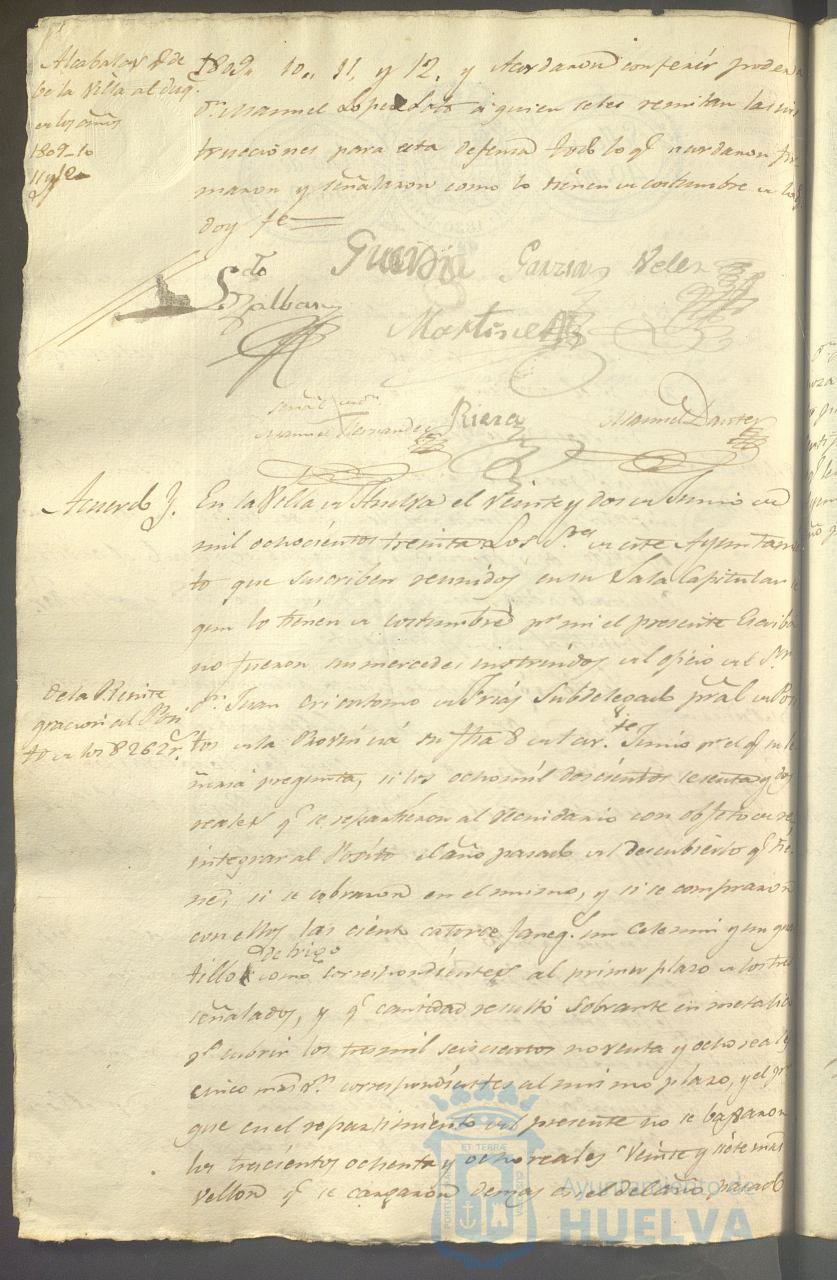 Alcabalas q.e de
be la Villa al Duq.e
en los años
1809-10
11 y 12
1809, 10, 11, y 12, y Acordaron conferir poder a
D.n Manuel Lopez Soto a quien se les remitan las ins
trucciones para esta defensa todo lo q.e acordaron fir
maron y señalaron como lo tienen de costumbre de lo q.e
doy fe
Garcia Velez
Martinez
Señal
Manuel Hernandez
Riera
Acuerdo
En la Villa de Huelva el Veinte y dos de Junio de
mil ochocientos treinta Los S.res de este Ayuntamien
to que suscriben reunidos en su Sala Capitular se
gun lo tienen de costumbre p.r mi el presente Escriba
no fueron sus mercedes instruidos del oficio del S.or
de la Reinte
gracion al Posi
to de los 8262 r.s
D.n Juan Crisostomo de Frias Subdelegado pral de Posi
tos de la Provincia su fha 8 del cor.te Junio p.r el q.e
pregunta, si los ocho mil doscientos sesenta y dos
reales q.e se repartieron al vecindario con objeto de re
integrar al Posito el año pasado del descubierto q.e tie
ne, si se cobraron en el mismo, y si se compraron
con ellos las ciento catorce faneg.s un celemin y un quar
tillo de trigo como correspondientes al primer plazo de los tres
señalados, y q.e cantidad resultó sobrante en metalico
p.a cubrir los tres mil seiscientos noventa y ocho reales
cinco mrs v.n correspondientes al mismo plazo, y el p.r
que en el repartimiento del presente no se bajaron
los trescientos ochenta y ocho reales veinte y siete mrs
vellon q.e se cargaron demas en el del año pasado
Ayuntamiento de
HUELVA